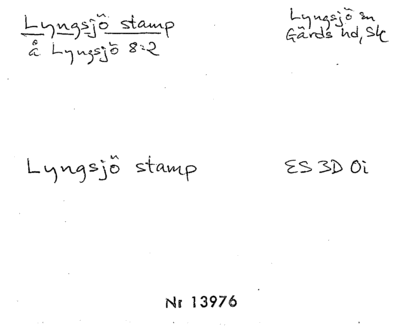 Lyngsjö stamp
å Lyngsjö 8:2
Lyngsjö sn
Gärds hd, Sk
Lyngsjö stamp
ES 3D 0i
Nr 13976